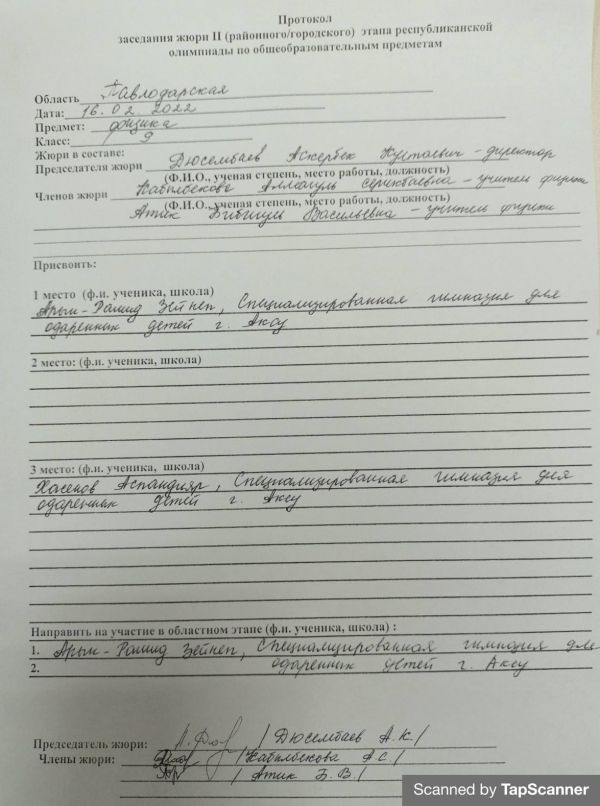 Протокол
заседания жюри II (районного/городского) этапа республиканской
олимпиады по общеобразовательным предметам
Область Павлодарская
Дата: 16.02 2022
Предмет: физика
Класс: 9
Жюри в составе:
Председателя жюри Дюсембаев Аскербек Куттаевич - директор
(Ф.И.О., ученая степень, место работы, должность)
Членов жюри Кабылбекова Алмагуль Серикбаевна - учитель физики
(Ф.И.О., ученая степень, место работы, должность)
Атик Бибигуль Васильевна - учитель физики
Присвоить:
1 место (ф.и. ученика, школа)
Арын-Рашид Зейнеп, Специализированная гимназия для
одаренных детей г. Аксу
2 место: (ф.и. ученика, школа)
3 место: (ф.и. ученика, школа)
Хасенов Аспандияр, Специализированная гимназия для
одаренных детей г. Аксу
Направить на участие в областном этапе (ф.и. ученика, школа) :
1. Арын-Рашид Зейнеп, Специализированная гимназия для
2. одаренных детей г. Аксу
Председатель жюри: / Дюсембаев А.К. /
Члены жюри: / Кабылбекова А.С. /
/ Атик Б.В. /
Scanned by TapScanner